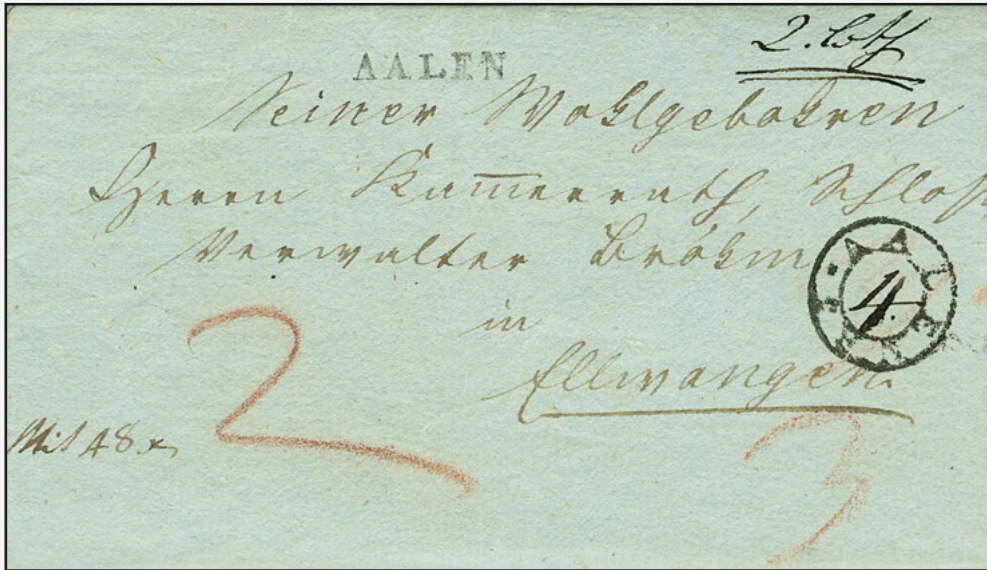 2. Loth
AALEN
Seiner Wohlgebohren
Herrn Kam̅errath, Schloß
Verwalter Bröhm
in
Ellwangen.
AALEN
4.
Mit 48 x
2
3